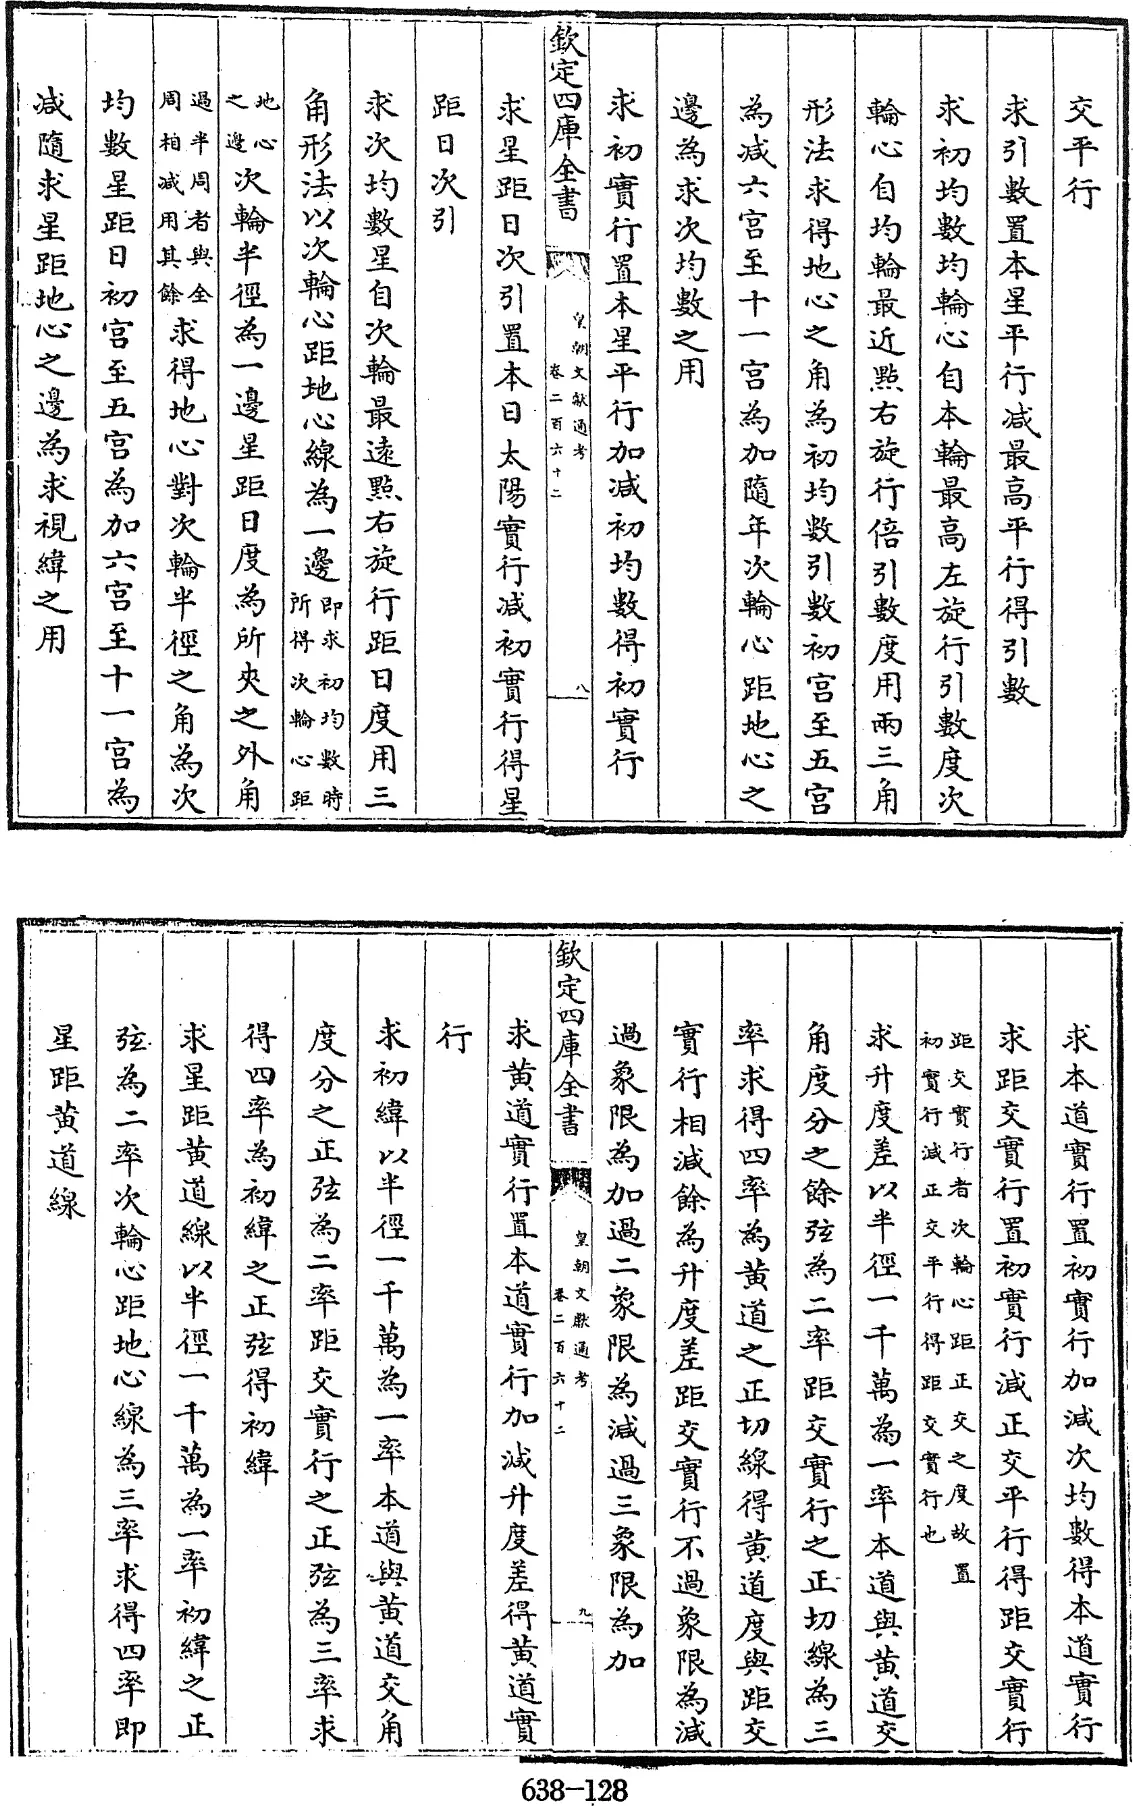 交平行
求引數置本星平行减最高平行得引數
求初均數均輪心自本輪最高左旋行引數度次
輪心自均輪最近㸃右旋行倍引數度用兩三角
形法求得地心之角為初均數引數初宮至五宮
為减六宮至十一宮為加隨年次輪心距地心之
邊為求次均數之用
求初實行置本星平行加减初均數得初實行
欽定四庫全書
皇朝文獻通考
卷二百六十二
八
求星距日次引置本日太陽實行减初實行得星
距日次引
求次均數星自次輪最遠㸃右旋行距日度用三
角形法以次輪心距地心線為一邊即求初均數時
所得次輪心距
地心
之邊次輪半徑為一邊星距日度為所夾之外角
過半周者與全
周相减用其餘求得地心對次輪半徑之角為次
均數星距日初宮至五宮為加六宮至十一宮為
减隨求星距地心之邊為求視緯之用
求本道實行置初實行加减次均數得本道實行
求距交實行置初實行减正交平行得距交實行
距交實行者次輪心距正交之度故置
初實行减正交平行得距交實行也
求升度差以半徑一千萬為一率本道與黄道交
角度分之餘弦為二率距交實行之正切線為三
率求得四率為黄道之正切線得黄道度與距交
實行相减餘為升度差距交實行不過象限為减
過象限為加過二象限為减過三象限為加
欽定四庫全書
皇朝文獻通考
卷二百六十二
九
求黄道實行置本道實行加减升度差得黄道實
行
求初緯以半徑一千萬為一率本道與黄道交角
度分之正弦為二率距交實行之正弦為三率求
得四率為初緯之正弦得初緯
求星距黄道線以半徑一千萬為一率初緯之正
弦為二率次輪心距地心線為三率求得四率即
星距黄道線
638-128